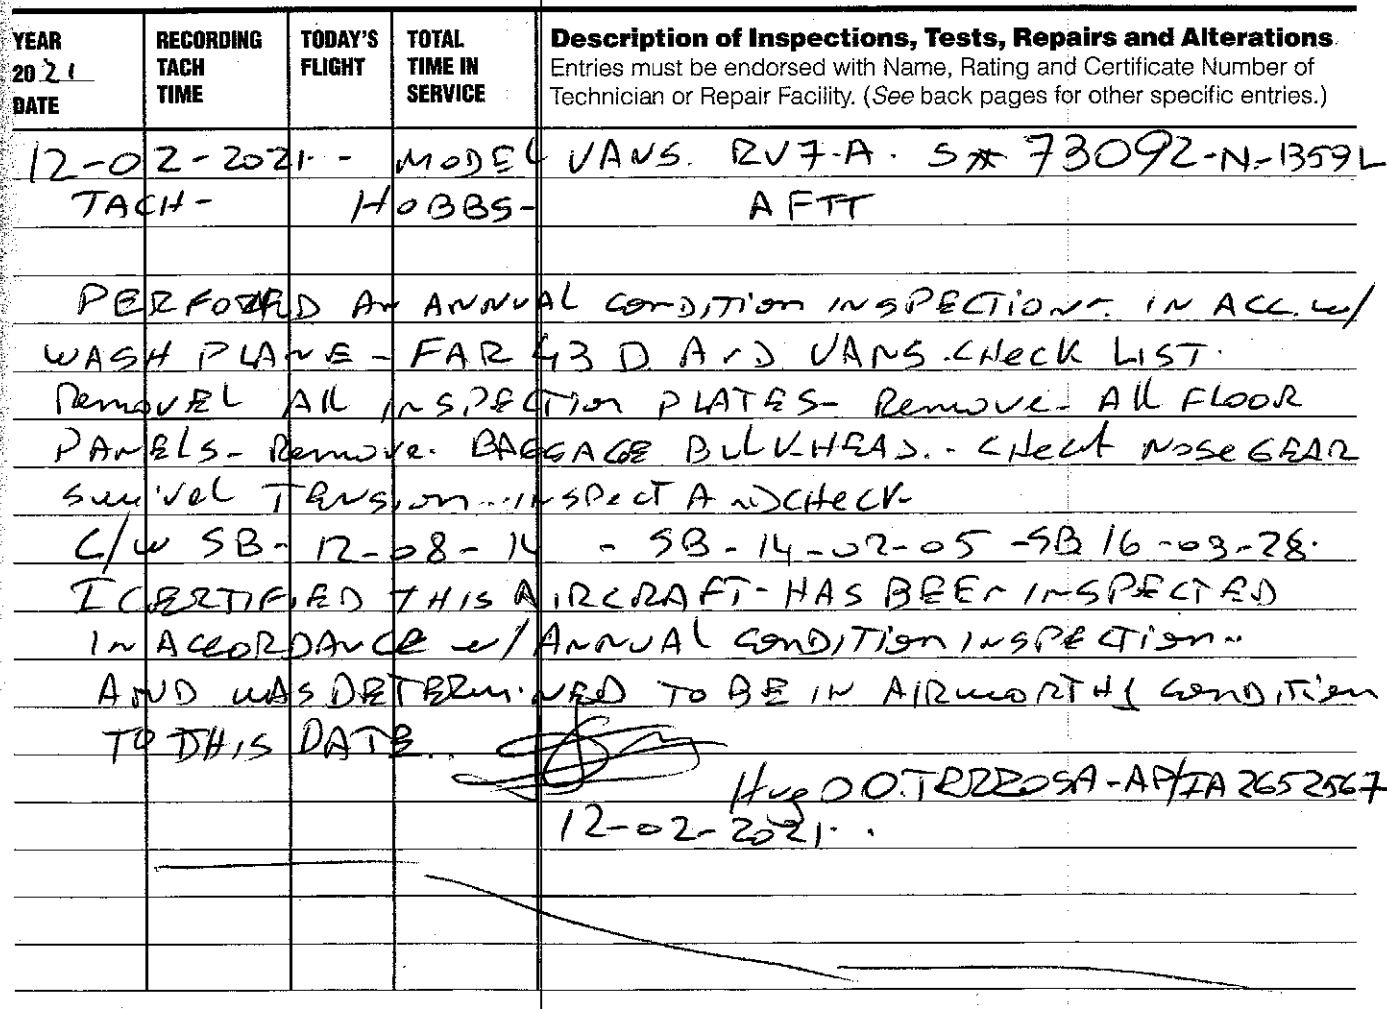 YEAR
20 21
DATE
RECORDING
TACH
TIME
TODAY'S
FLIGHT
TOTAL
TIME IN
SERVICE
Description of Inspections, Tests, Repairs and Alterations
Entries must be endorsed with Name, Rating and Certificate Number of
Technician or Repair Facility. (See back pages for other specific entries.)
12-02-2021 - MODEL VANS. RV7-A. S# 73092-N-1359L
TACH- HOBBS- AFTT
AN ANNUAL CONDITION INSPECTION - IN ACC. w/
WASH PLANE - FAR 43 D AND VANS. CHECK LIST.
All INSPECTION PLATES- Remove- All FLOOR
PANELS- Remove. BAGGAGE BULKHEAD. - CHECK NOSE GEAR
TENSION - INSPECT AND CHECK-
C/W SB- 12-08-14 - SB-14-02-05 -SB 16-03-28.
I CERTIFIED THIS AIRCRAFT- HAS BEEN INSPECTED
IN ACCORDANCE w/ ANNUAL CONDITION INSPECTION-
AND WAS DETERMINED TO BE IN AIRWORTHY CONDITION
TO THIS DATE.
Hugo O. -AP/IA 2652567
12-02-2021.